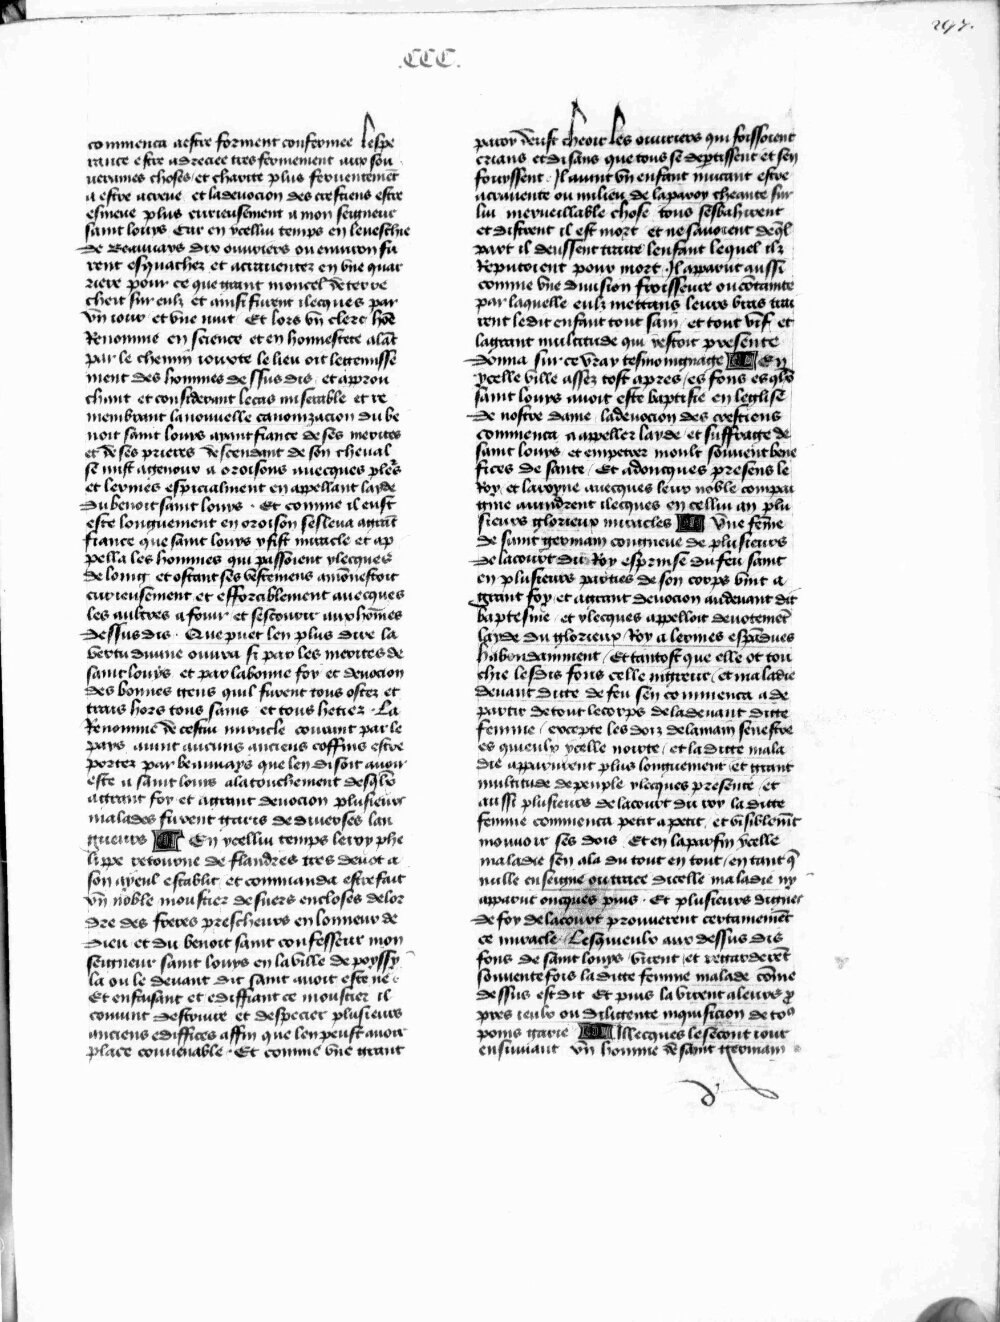 297.
.CCC.
commenca aestre forment confermee lespe
rance estre adreciee tres fermement aux sou
veraines choses et charite plus ferventement
a estre acreue et la devocion des crestiens estre
esmeue plus curieusement a mon seigneur
saint louys Car en ycelluy temps en leveschie
de Beauvais dix ouvriers ou environ fu
rent esquachez et acraventez en une quar
riere pour ce que grant moncel de terre
cheit sur eulz et ainsi furent ilecques par
un jour et une nuit Et lors un clerc home
Renomme en science et en honnestete alant
par le chemin jouxte le lieu oit le gemisse
ment des hommes dessus dis et approu
chant et considerant le cas miserable et re
membrant la nouvelle canonizacion du be
noit saint louys ayant fiance de ses merites
et de ses prieres descendant de son cheval
se mist agenoux a oroisons avecques pleurs
et lermes especialment en appellant layde
du benoit saint louys . Et comme il eust
este longuement en oroison sesleva a grant
fiance que saint louys y fist miracle et ap
pella les hommes qui passoient ylecques
de loing et ostant ses vestemens amonestoit
curieusement et efforciblement avecques
les aultres a fouir et secourir aux hommes
dessus dis . Que puet len plus dire la
vertu divine ouvra si par les merites de
saint louys et par la bonne foy et devocion
des bonnes gens quil furent tous ostez et
trais hors tous sains et tous hetiez . La
Renommee de cestui miracle courant par le
pays avint aucuns anciens coffins estre
portez par beauvays que len disoit avoir
este a saint louys a latouchement desquels
a grant foy et a grant devocion plusieurs
malades furent garis de diverses lan
gueurs En ycelluy temps le roy phe
lippe retourne de flandres tres devot a
son ayeul establit et commanda estre fait
un noble moustier de suers encloses de lor
dre des freres prescheurs en lonneur de
dieu et du benoit saint confesseur mon
seigneur saint louys en la ville de poyssy
la ou le devant dit saint avoit este ne
Et en faisant et ediffiant ce moustier il
convint destruire et despecier plusieurs
anciens ediffices affin que len peust avoir
place convenable . Et comme une grant
paroy deust cheoir les ouvriers qui foissoient
crians et disans que tous se departissent et sen
fouyssent . Il avint un enfant mucant estre
acravente ou milieu de la paroy cheante sur
lui merveillable chose tous sesbahirent
et distrent il est mort et ne savoient de quel
part il deussent traire lenfant lequel ilz
Reputoient pour mort . Il apparut aussi
comme une division froisseure ou contrainte
par laquelle eulz mettans leurs bras trai
rent ledit enfant tout sain et tout vif et
la grant multitude qui estoit presente
donna sur ce vray tesmoingnage En
ycelle ville assez tost apres es fons esquels
saint louys avoit este baptisie en leglise
de nostre dame la devocion des crestiens
commenca a appeller layde et suffrage de
saint louys et empetrer moult souvent bene
fices de sante Et adoncques presens le
Roy et la royne avecques leur noble compai
gnie avindrent ilecques en celluy an plu
sieurs glorieux miracles Une femme
de saint germain congneue de plusieurs
de la court du Roy esprinse du feu saint
en plusieurs parties de son corps vint a
grant foy et a grant devocion au devant dit
baptesme et ylecques appelloit devotement
layde du glorieux Roy a lermes espandues
habondamment Et tantost que elle ot tou
chie lesdis fons celle ... et maladie
devant dicte de feu sen commenca a de
partir de tout le corps de la devant dicte
femme excepte les doiz de la main senestre
es quieulx ycelle noirte et la dicte mala
die apparurent plus longuement et grant
multitude de peuple ylecques presente et
aussi plusieurs de la court du roy la dicte
femme commenca petit a petit et visiblement
mouvoir ses dois Et en la parfin ycelle
maladie sen ala du tout en tout en tant que
nulle enseigne ou trace dicelle maladie ny
apparut oncques puis . Et plusieurs dignes
de foy de la court prouverent certainement
ce miracle Lesquieulx aux dessus dis
fons de saint louys virent et regarderent
souventefois la dicte femme malade comme
dessus est dit Et puis la virent a leurs pro
pres yeulx ou diligente inquisicion de tous
poins garie Illecques le second jour
ensuivant un homme de saint germain